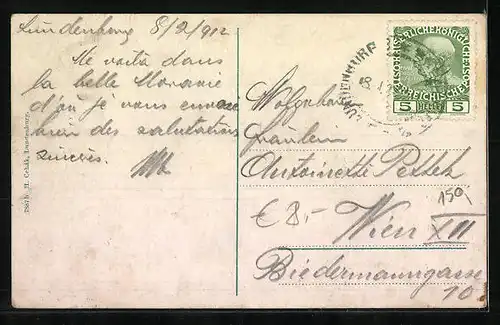 Lundenburg 8/2/912
Me voilà dans
la belle Moravie
d'où je vous envoie
bien des salutations
sincères.
7867 b H. Cehák, Lundenburg.
KAISERLICHE KÖNIGLICHE
ÖSTERREICHISCHE POST
5 HELLER 5
LUNDENBURG
Wolgeboren
Fräulein
Antoinette
150
€ 8,-
Wien XII
Biedermanngasse
10.